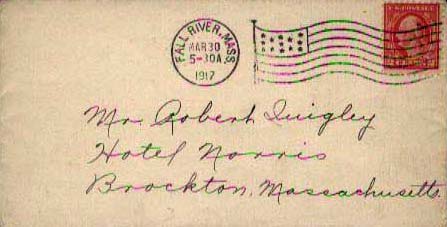 FALL RIVER, MASS.
MAR 30
5-30A
1917
U.S. POSTAGE
Mr. Robert Quigley
Hotel Norris
Brockton, Massachusetts.